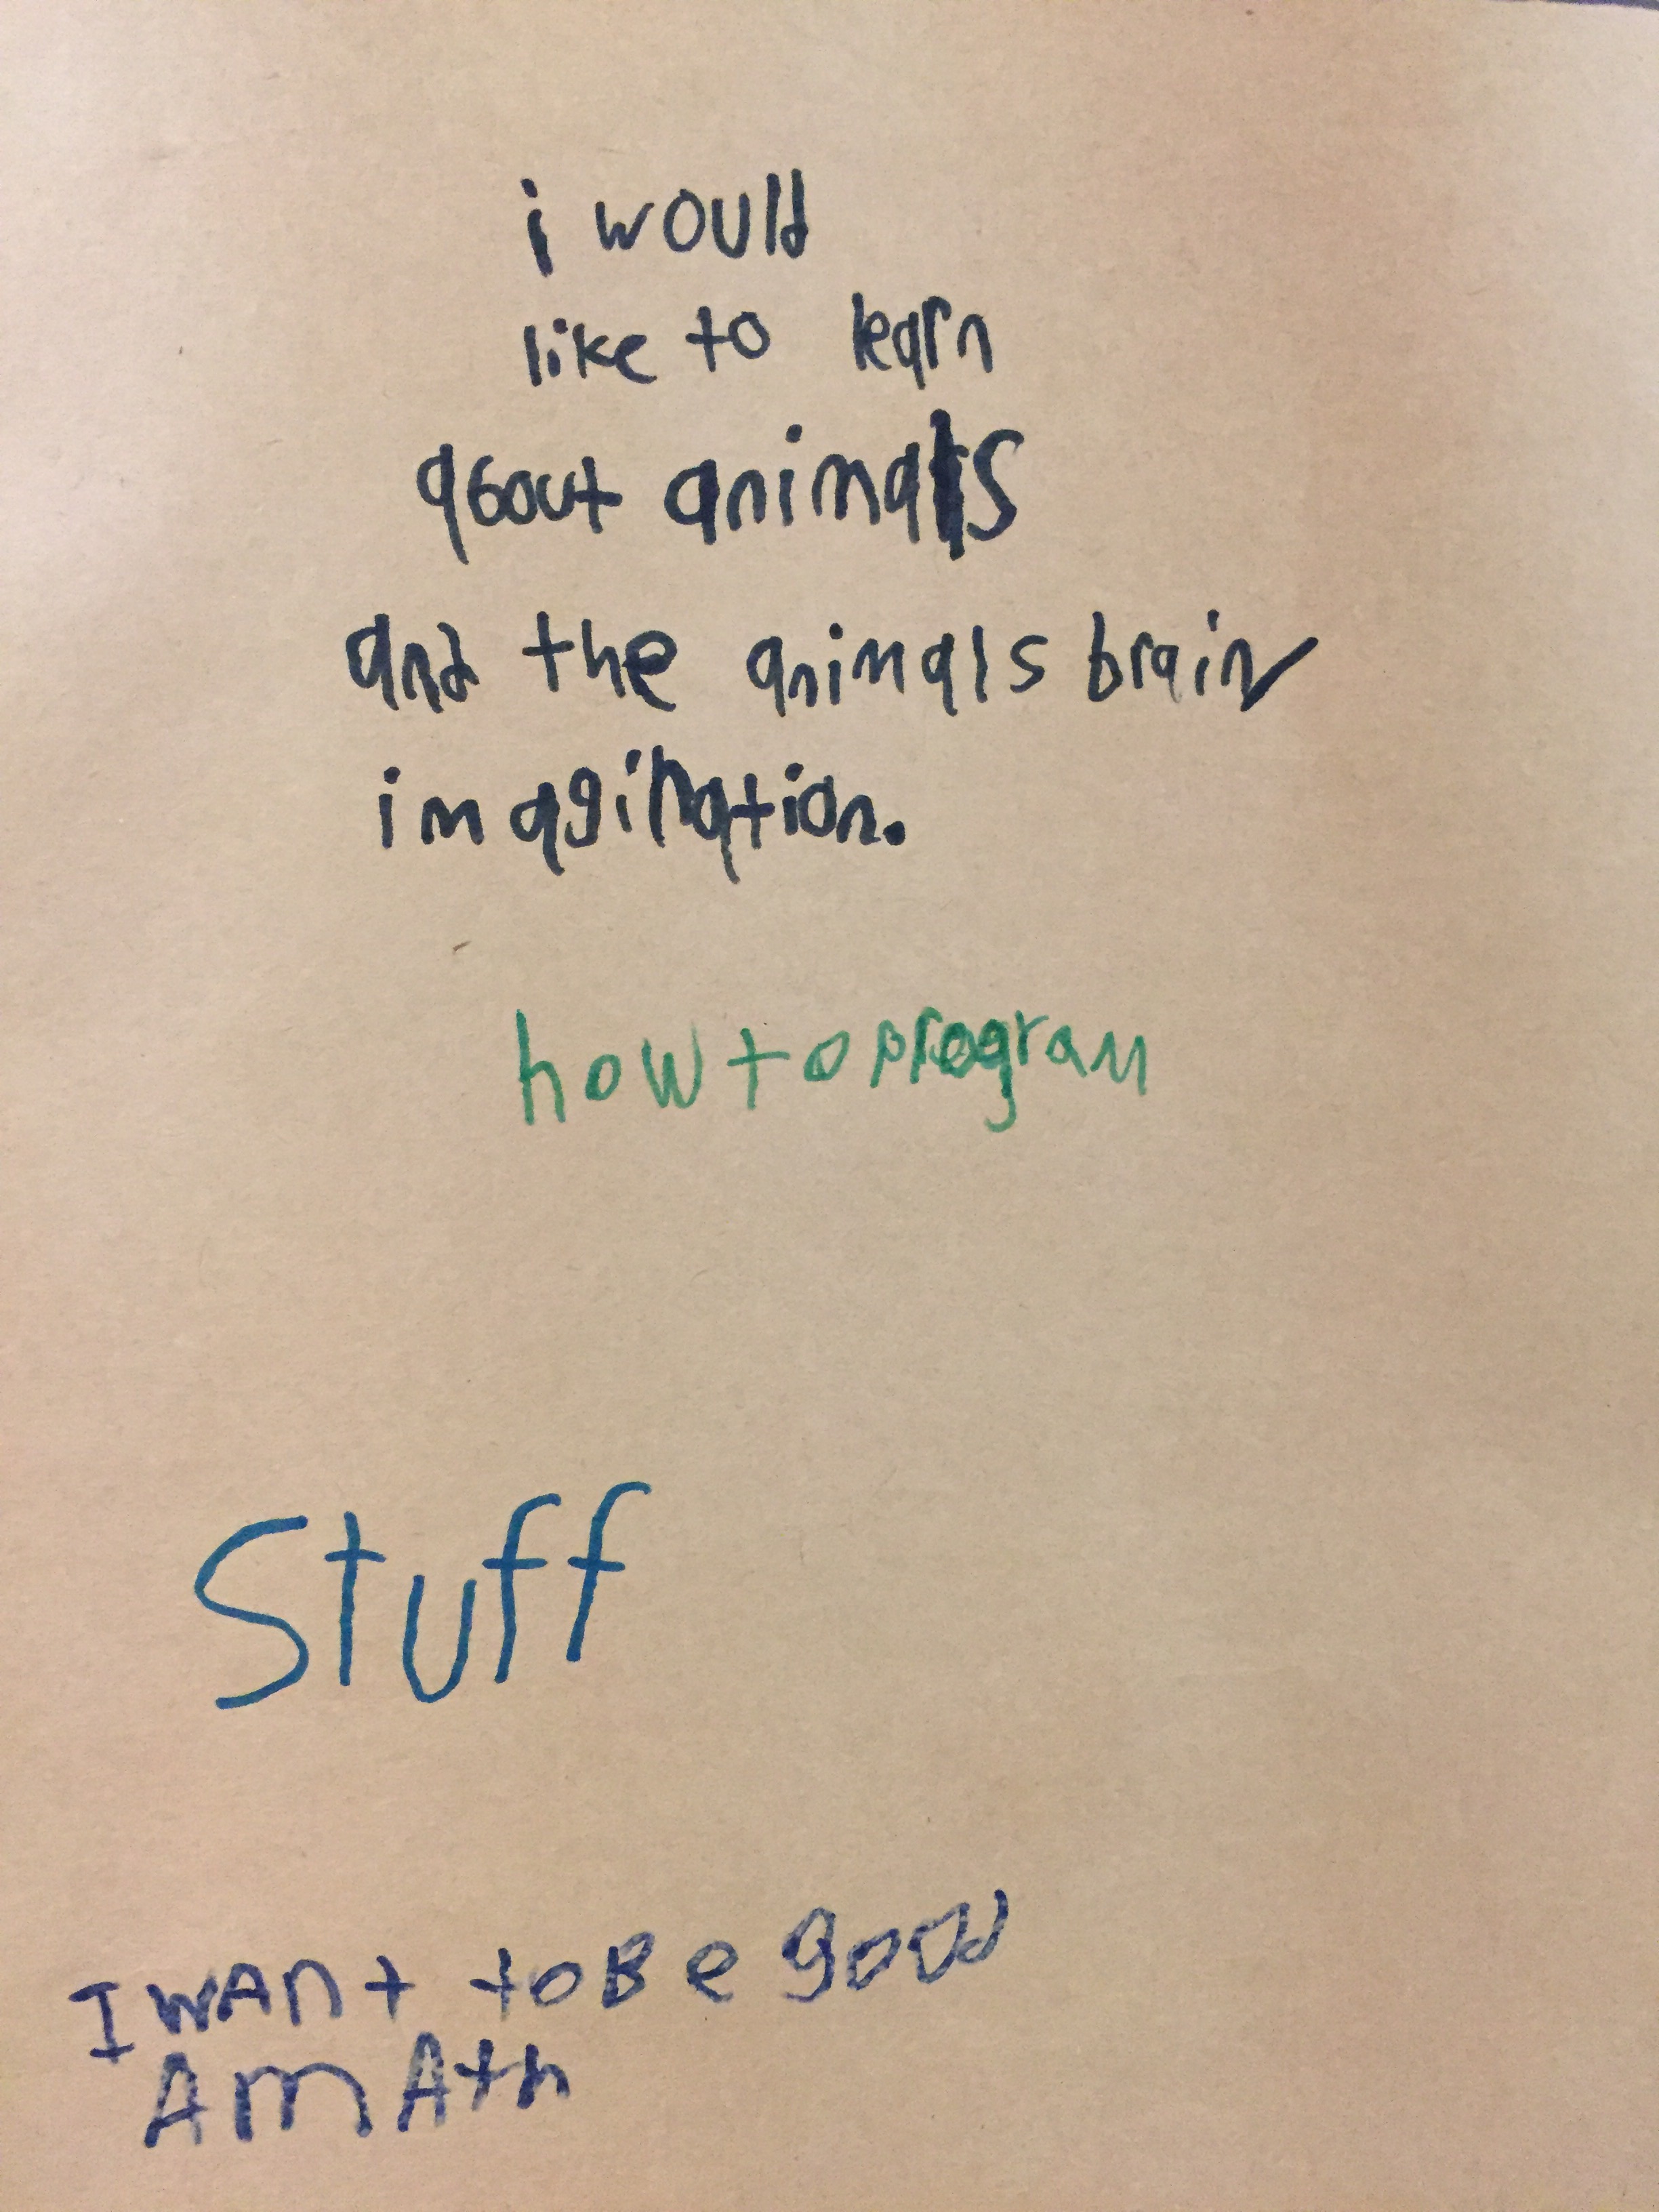 i would
like to learn
about animals
and the animals brain
imagination.
how to program
Stuff
I WANt to Be good
A mAth